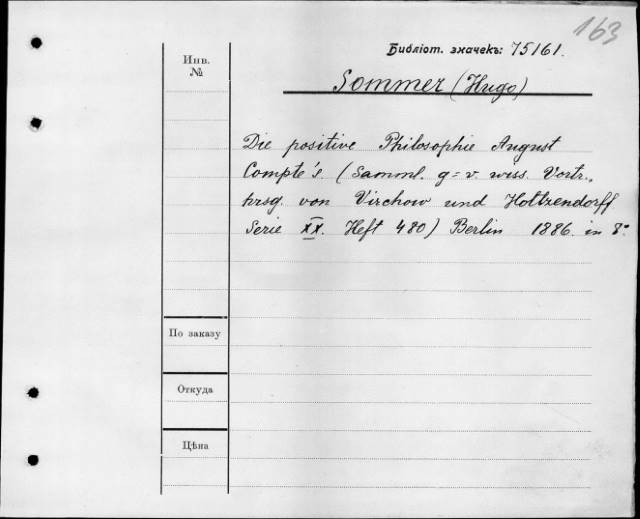 163
Библіот. значекъ: 75161.
Инв.
№
Sommer (Hugo)
Die positive Philosophie August
Compte's. (Samml. g=v. wiss. Vortr.,
hrsg. von Virchow und Holtzendorff
Serie XX. Heft 480) Berlin 1886. in 8°
По заказу
Откуда
Цѣна